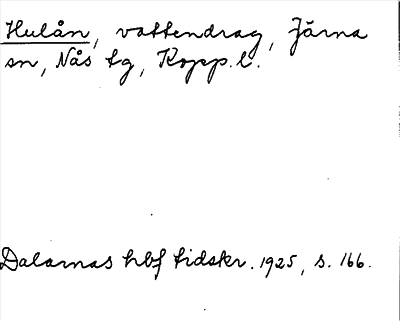 Hulån, vattendrag, Järna
sn, Nås tg, Kopp.l.
Dalarnas hbf tidskr. 1925, s. 166.